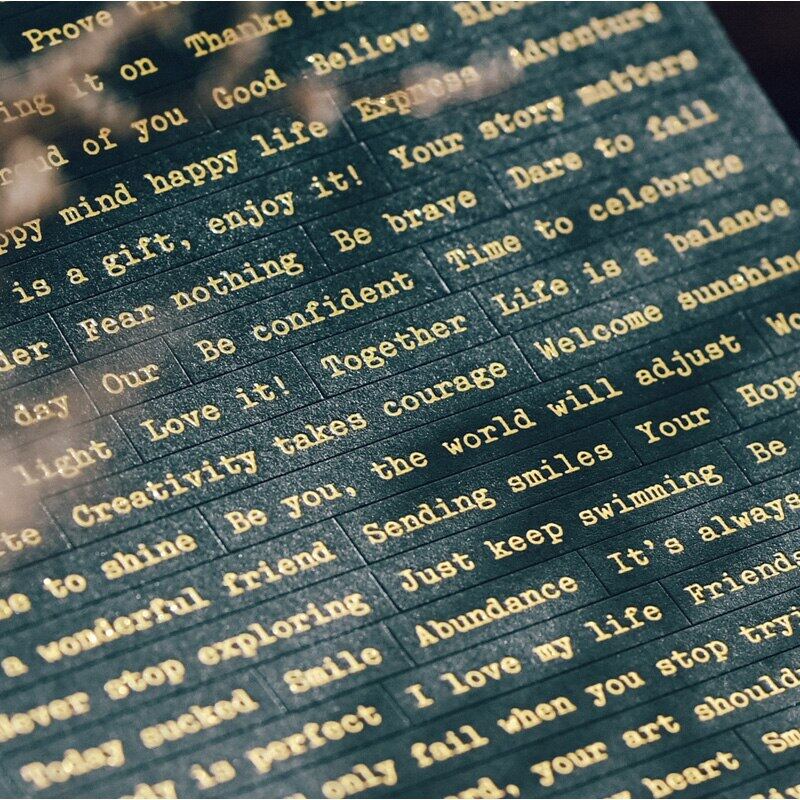 Prove the
ing it on Thanks for
roud of you Good Believe
ppy mind happy life Express Adventure
is a gift, enjoy it! Your story matters
der Fear nothing Be brave Dare to fail
day Our Be confident Time to celebrate
light Love it! Together Life is a balance
te Creativity takes courage Welcome sunshin
me to shine Be you, the world will adjust Wo
a wonderful friend Sending smiles Your Hope
Never stop exploring Just keep swimming Be
Today sucked Smile Abundance It's always
dy is perfect I love my life Friends
only fail when you stop tryi
rd, your art should
heart Sm